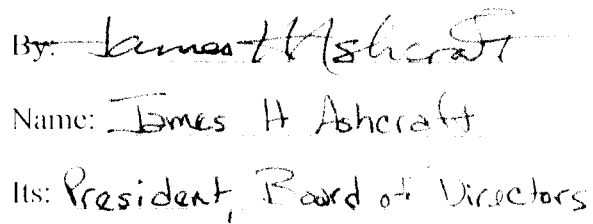 By: James H Ashcraft
Name: James H Ashcraft
Its: President, Board of Directors